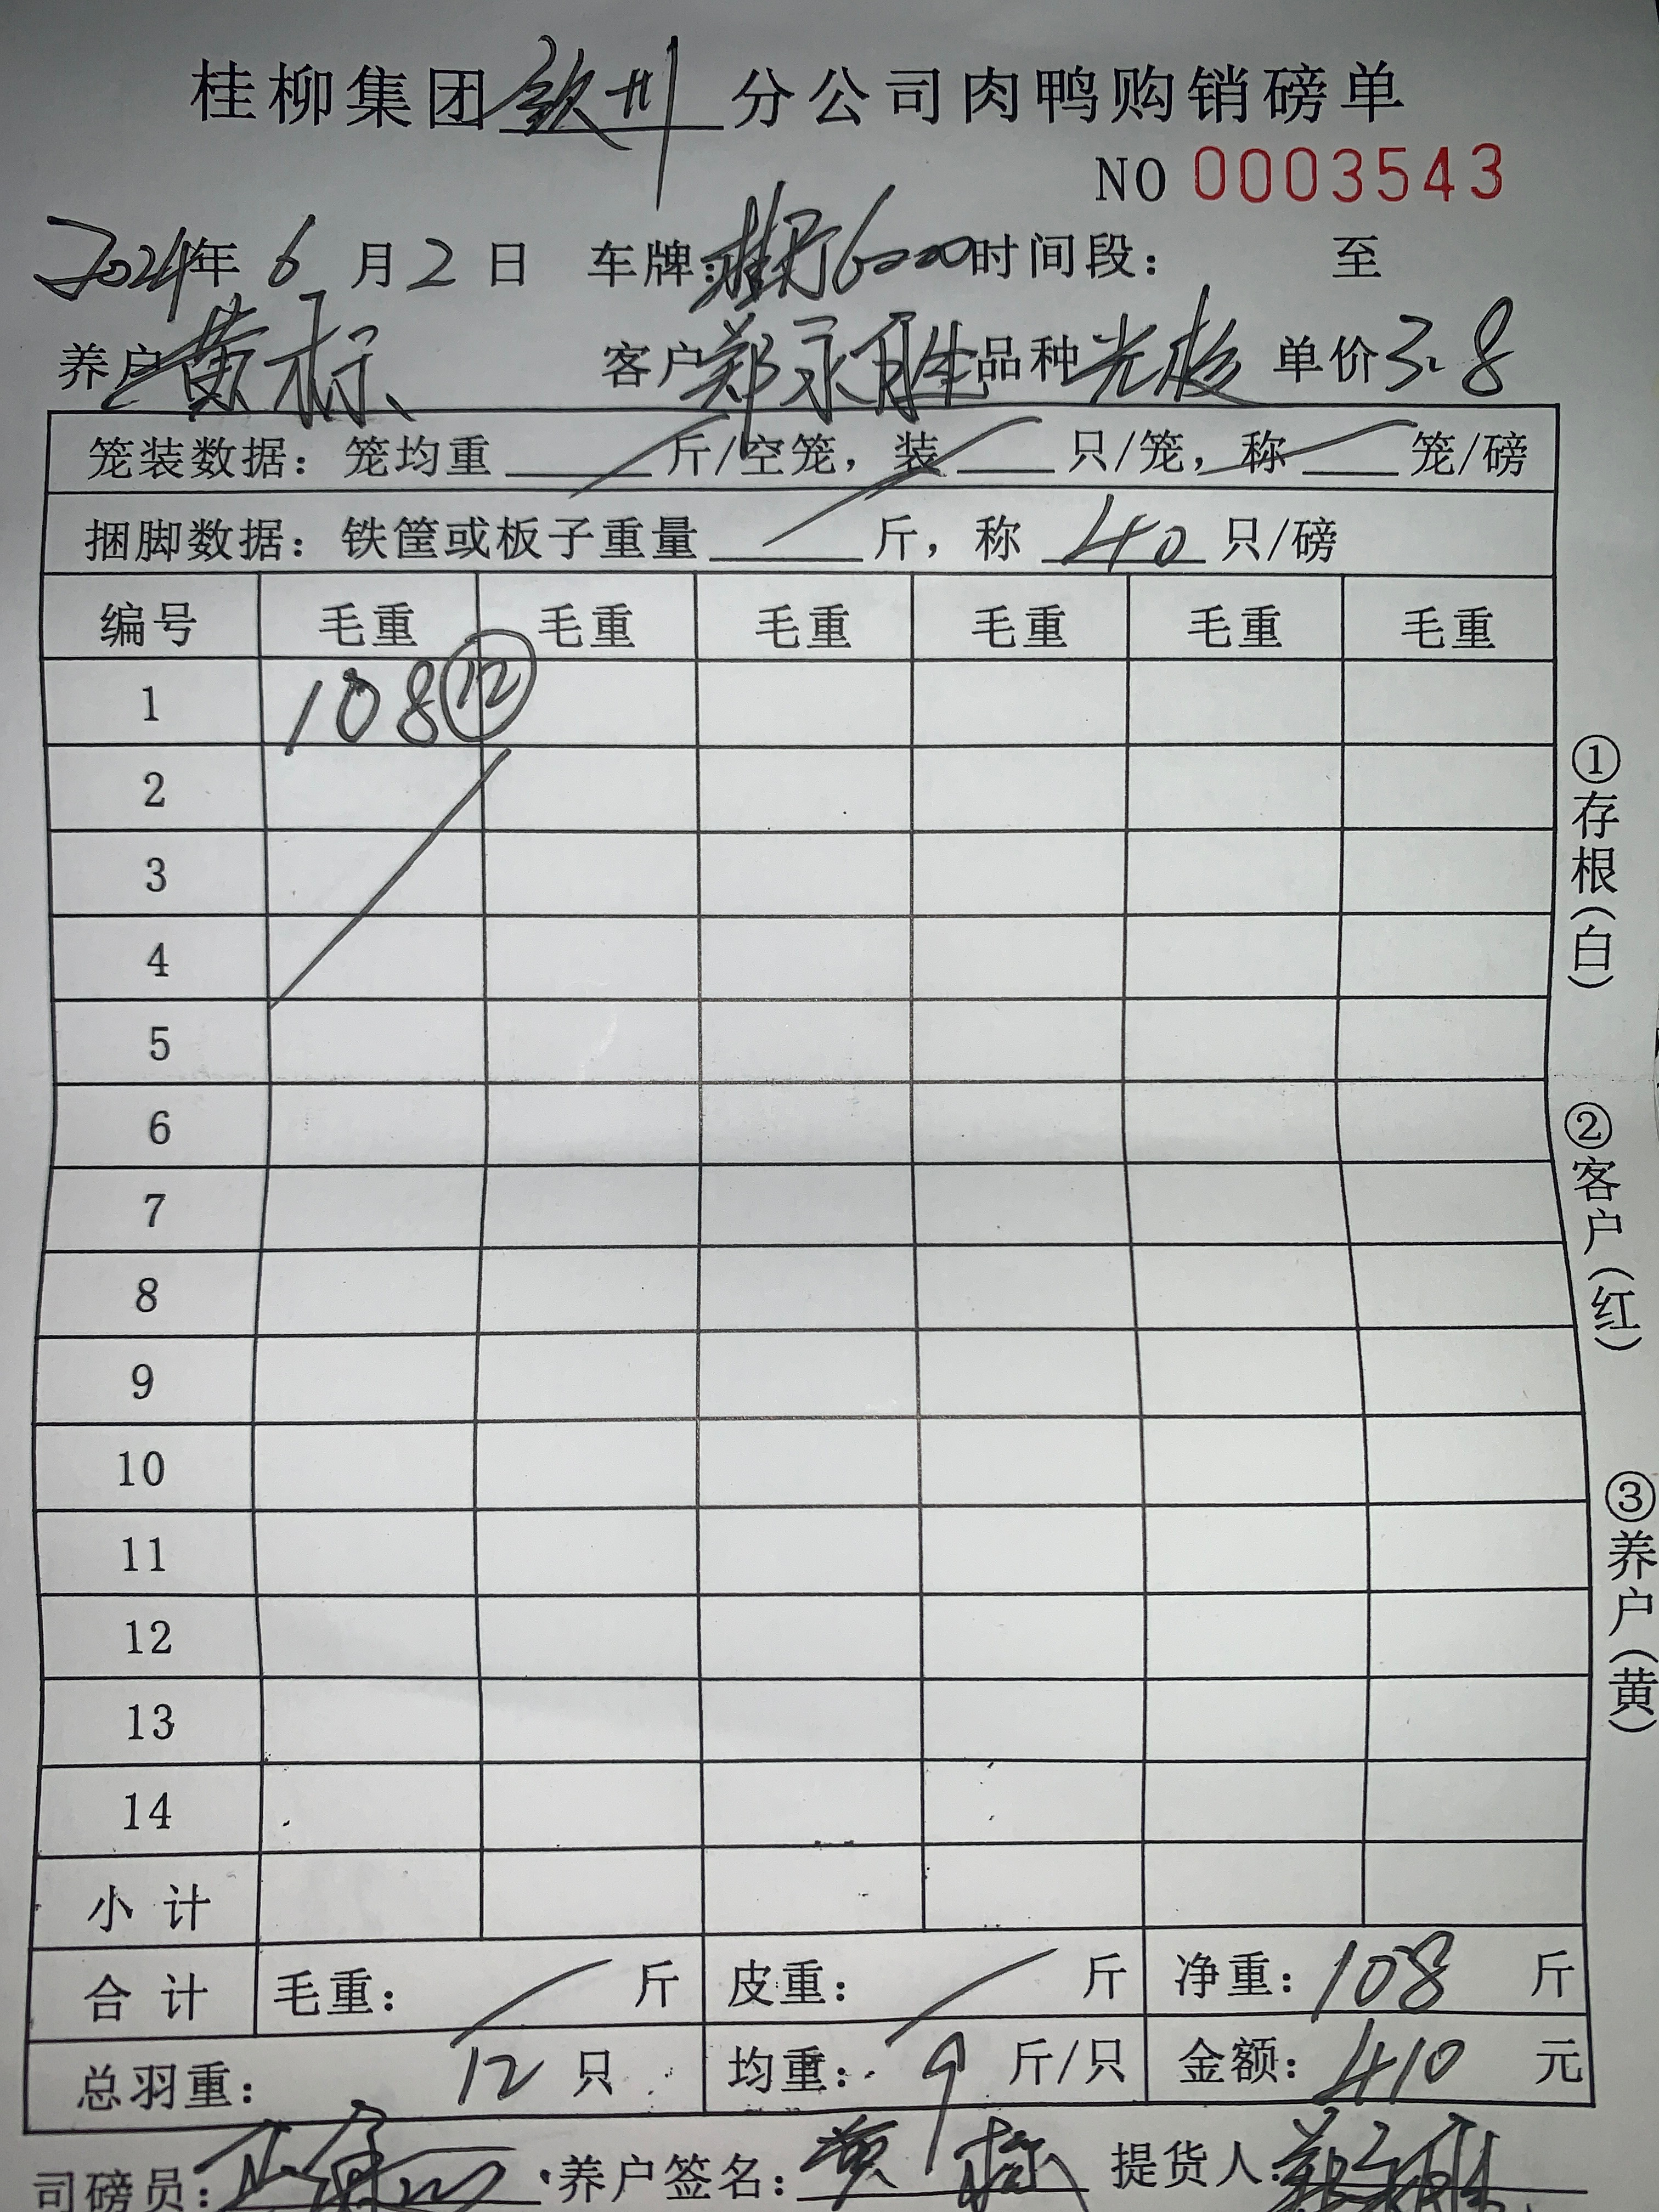 桂柳集团钦州分公司肉鸭购销磅单
NO 0003543
2024年6月2日 车牌: 6000 时间段： 至
养户黄标 客户郑永胜 品种 单价3.8
笼装数据：笼均重 斤/空笼，装 只/笼，称 笼/磅
捆脚数据：铁筐或板子重量 斤，称 40 只/磅
编号 毛重 毛重 毛重 毛重 毛重 毛重
1 108 ⑫
2
3
4
5
6
7
8
9
10
11
12
13
14
小计
合计 毛重： 斤 皮重： 斤 净重：108 斤
总羽重： 12只 均重：9斤/只 金额：410 元
司磅员： 养户签名：黄标 提货人：郑永胜
①存根（白）
②客户（红）
③养户（黄）